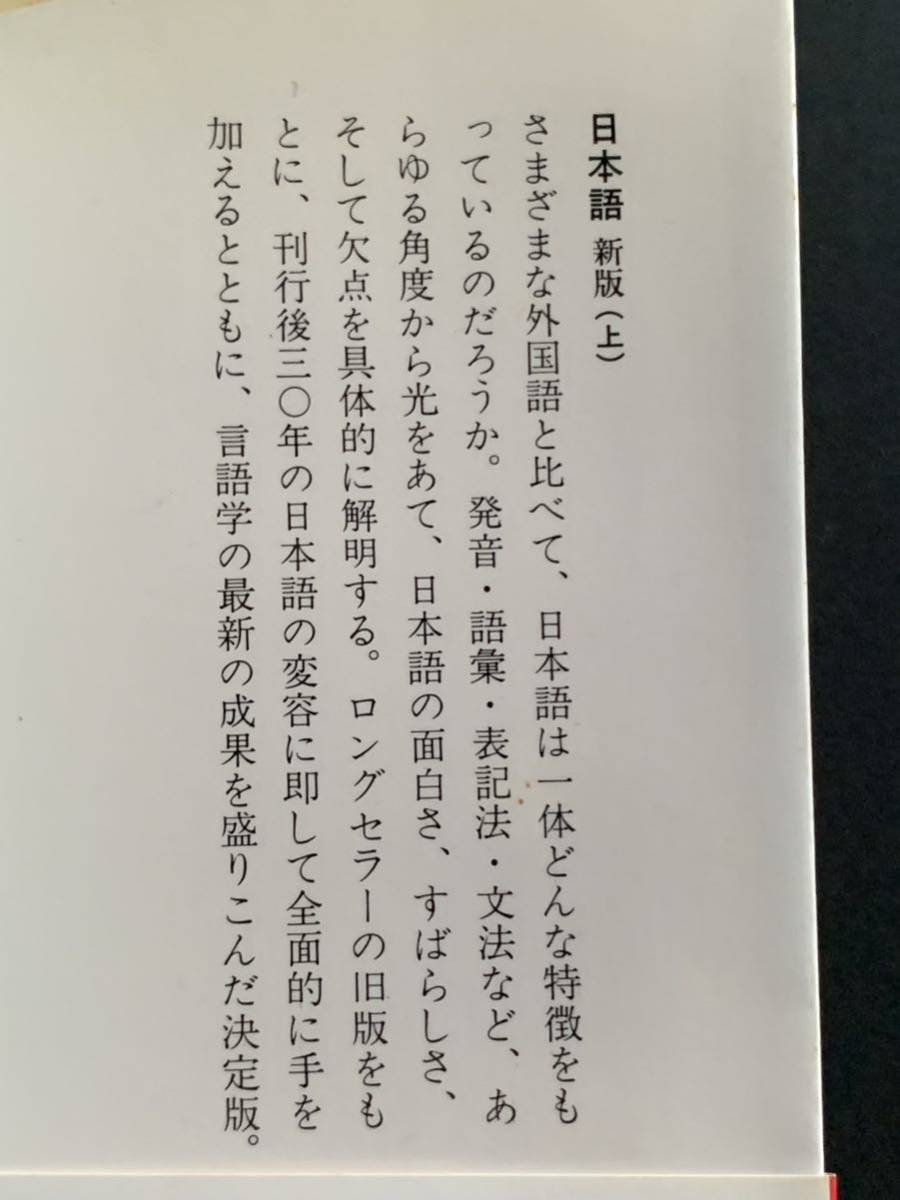 日本語 新版(上)
さまざまな外国語と比べて、日本語は一体どんな特徴をも
っているのだろうか。発音・語彙・表記法・文法など、あ
らゆる角度から光をあて、日本語の面白さ、すばらしさ、
そして欠点を具体的に解明する。ロングセラーの旧版をも
とに、刊行後三〇年の日本語の変容に即して全面的に手を
加えるとともに、言語学の最新の成果を盛りこんだ決定版。